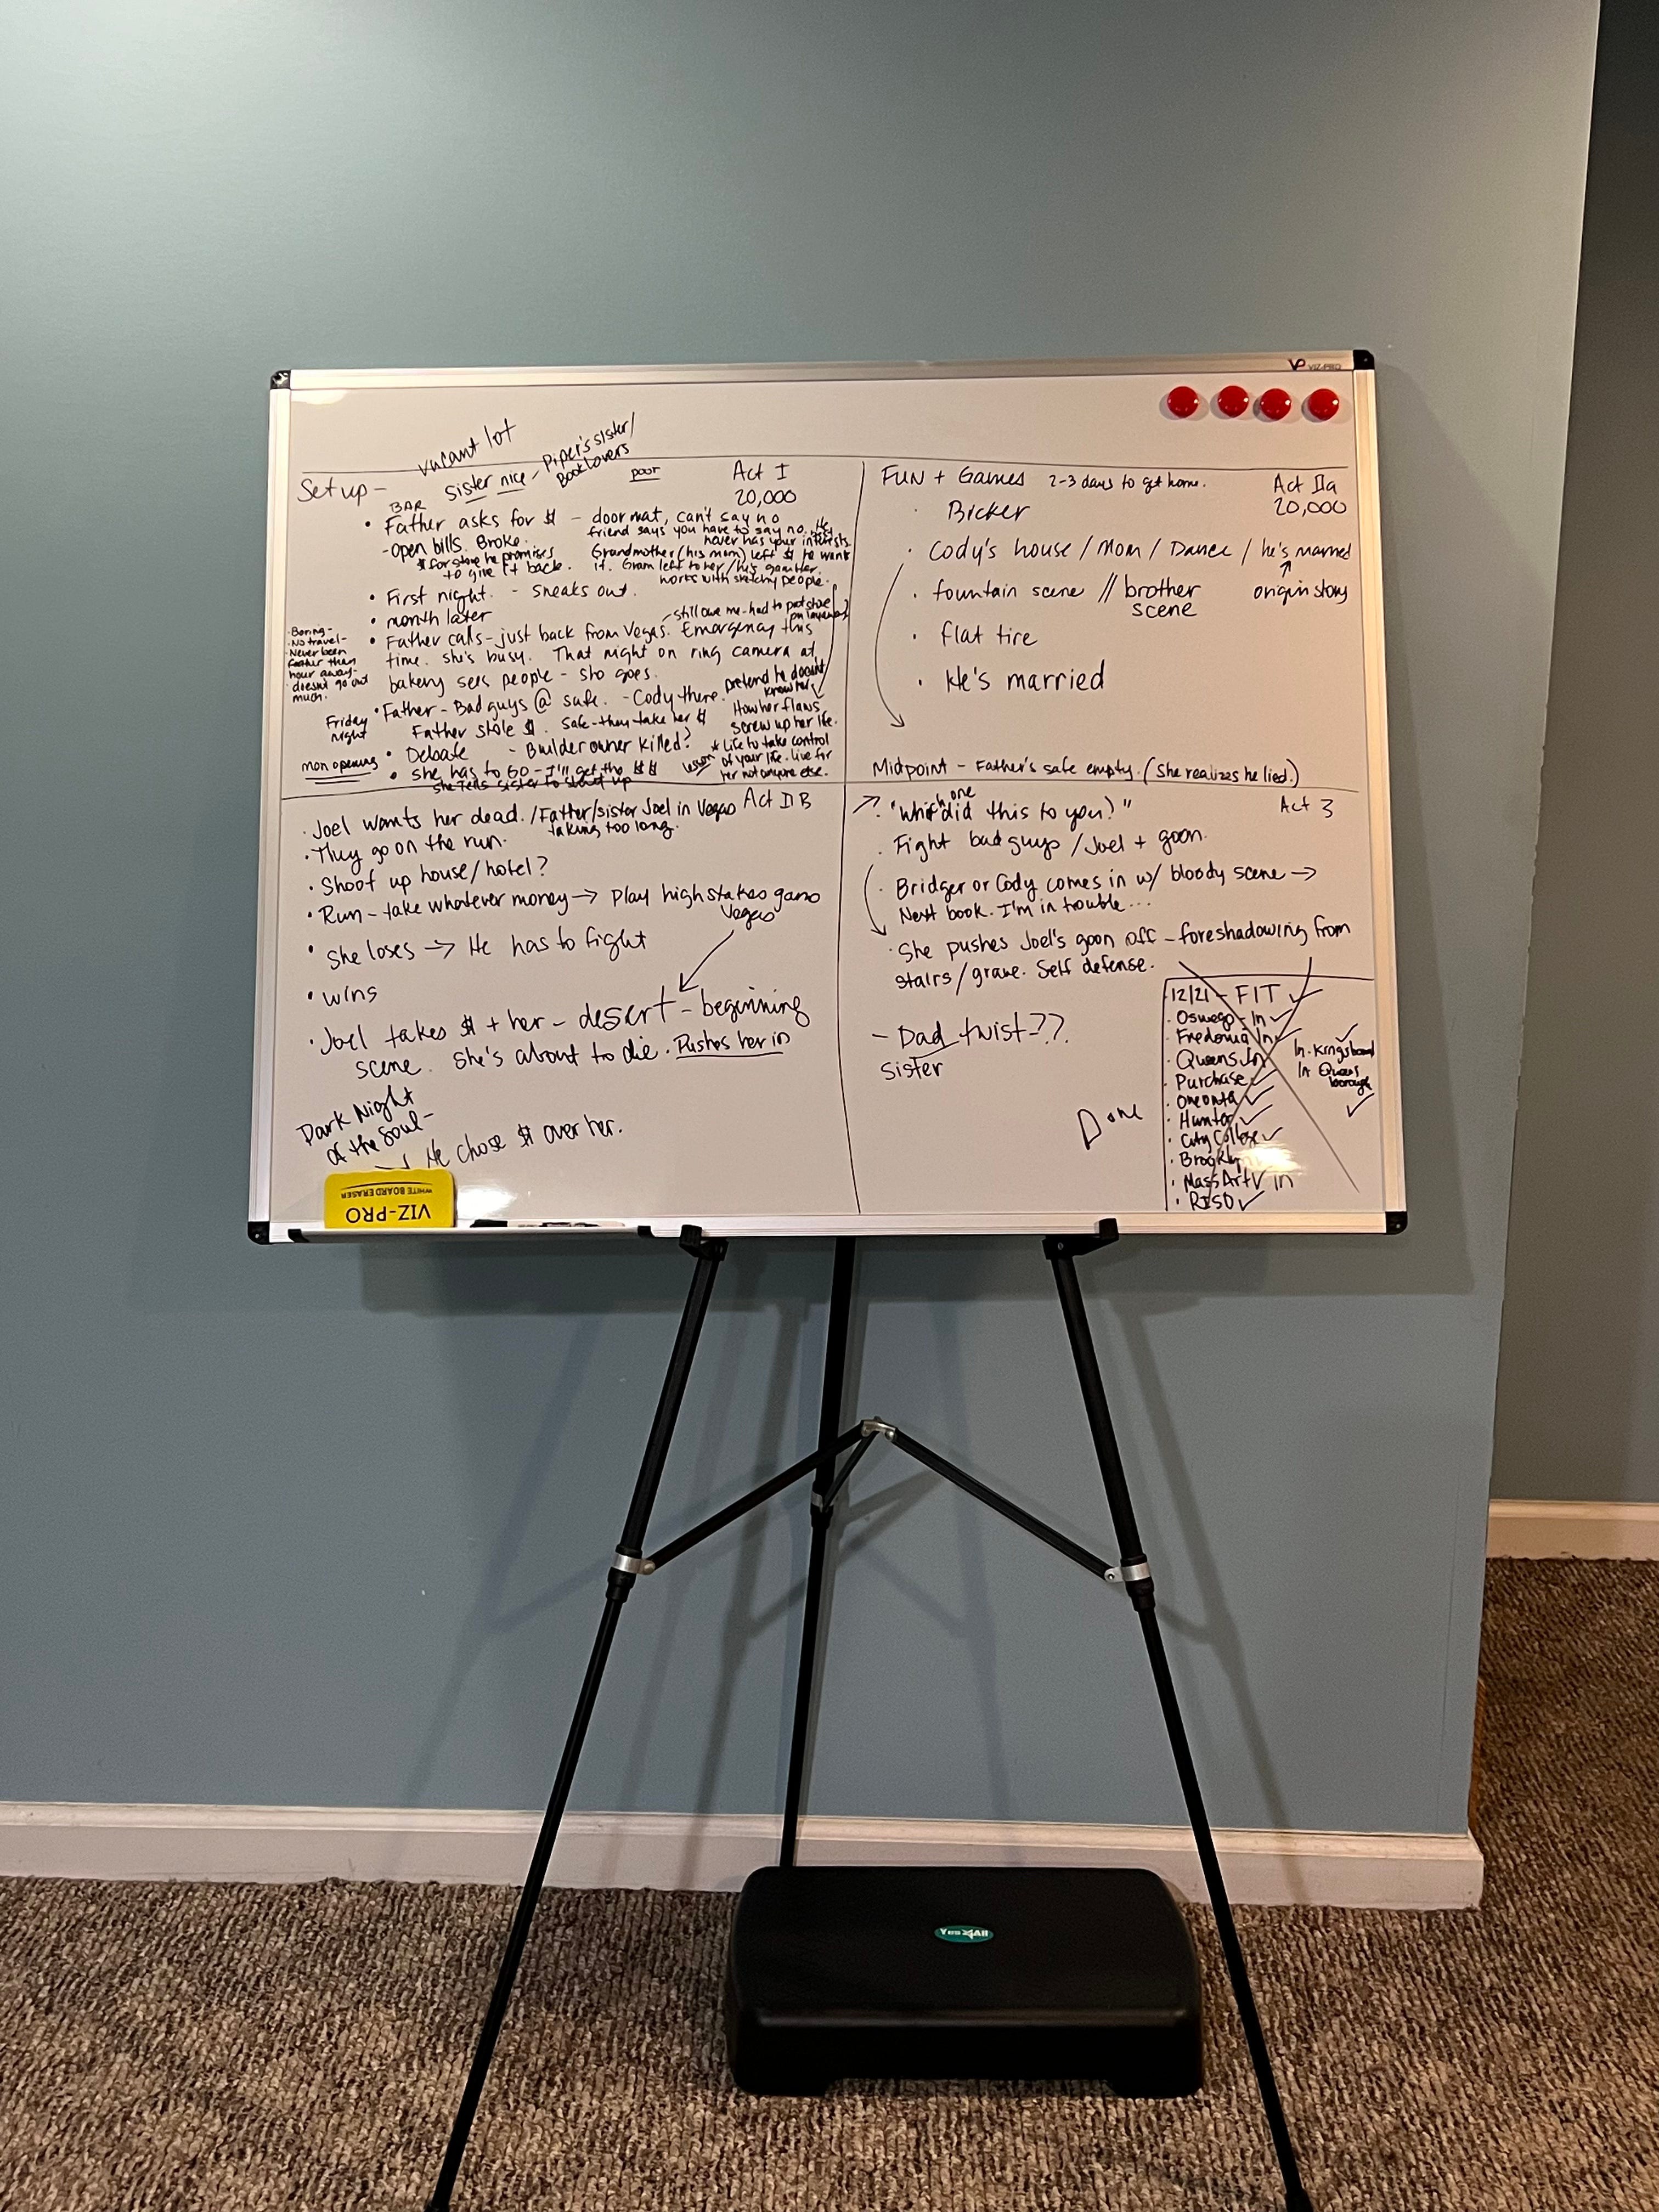 VP VIZ-PRO
vacant lot
Sister nice - Piper's sister/
Book Lovers
poor
Set up -
Act I
20,000
BAR
• Father asks for $ - doormat, can't say no
friend says you have to say no. He
never has your interests.
-Open bills. Broke.
$ for store he promises
to give it back.
Grandmother (his mom) left $ he want
it. Gram left to her/he's gambler.
works with sketchy people.
• First night. - sneaks out.
• month later
- still owe me - had to put stove
on layaway
• Father calls - just back from Vegas. Emergency this
time. she's busy. That night on ring camera at
bakery sees people - she goes.
· Boring -
· No travel -
· Never been
farther than
hour away -
· doesn't go out
much.
Friday
night
• Father - Bad guys @ safe. - Cody there.
pretend he doesn't
know her
Father stole $. Safe - they take her $
How her flaws
screw up her life.
mon opening
• Debate - Builder owner killed?
• she has to GO - I'll get the $$
she tells sister to start up
lesson
* Life to take control
of your life. live for
her not anyone else.
FUN + GAMES 2-3 days to get home.
Act IIa
20,000
· Bicker
· Cody's house / Mom / Dance / he's married
origin story
· fountain scene // brother
scene
· flat tire
· He's married
Midpoint - Father's safe empty. (She realizes he lied.)
Act II B
· Joel wants her dead. /Father/sister Joel in Vegas
taking too long.
· They go on the run.
· Shoot up house/hotel?
· Run - take whatever money → Play high stakes game
Vegas
· She loses → He has to fight
· wins
· Joel takes $ + her - desert - beginning
scene. She's about to die. Pushes her in
Dark Night
of the Soul -
→ He chose $ over her.
Act 3
"Which one did this to you?"
· Fight bad guys /Joel + goon.
· Bridger or Cody comes in w/ bloody scene →
Next book. I'm in trouble...
· She pushes Joel's goon off - foreshadowing from
stairs/grave. Self defense.
- Dad twist??
sister
Done
12/21 - FIT ✓
· Oswego - In ✓
· Fredonia In ✓
· Queens In
· Purchase ✓
· Oneonta ✓
· Hunter ✓
· City College ✓
· Brooklyn
· Mass Art ✓ in
· RISD ✓
✓
In - Kingsboro
In Queens
borough
✓
VIZ-PRO
WHITE BOARD ERASER
Yes4All